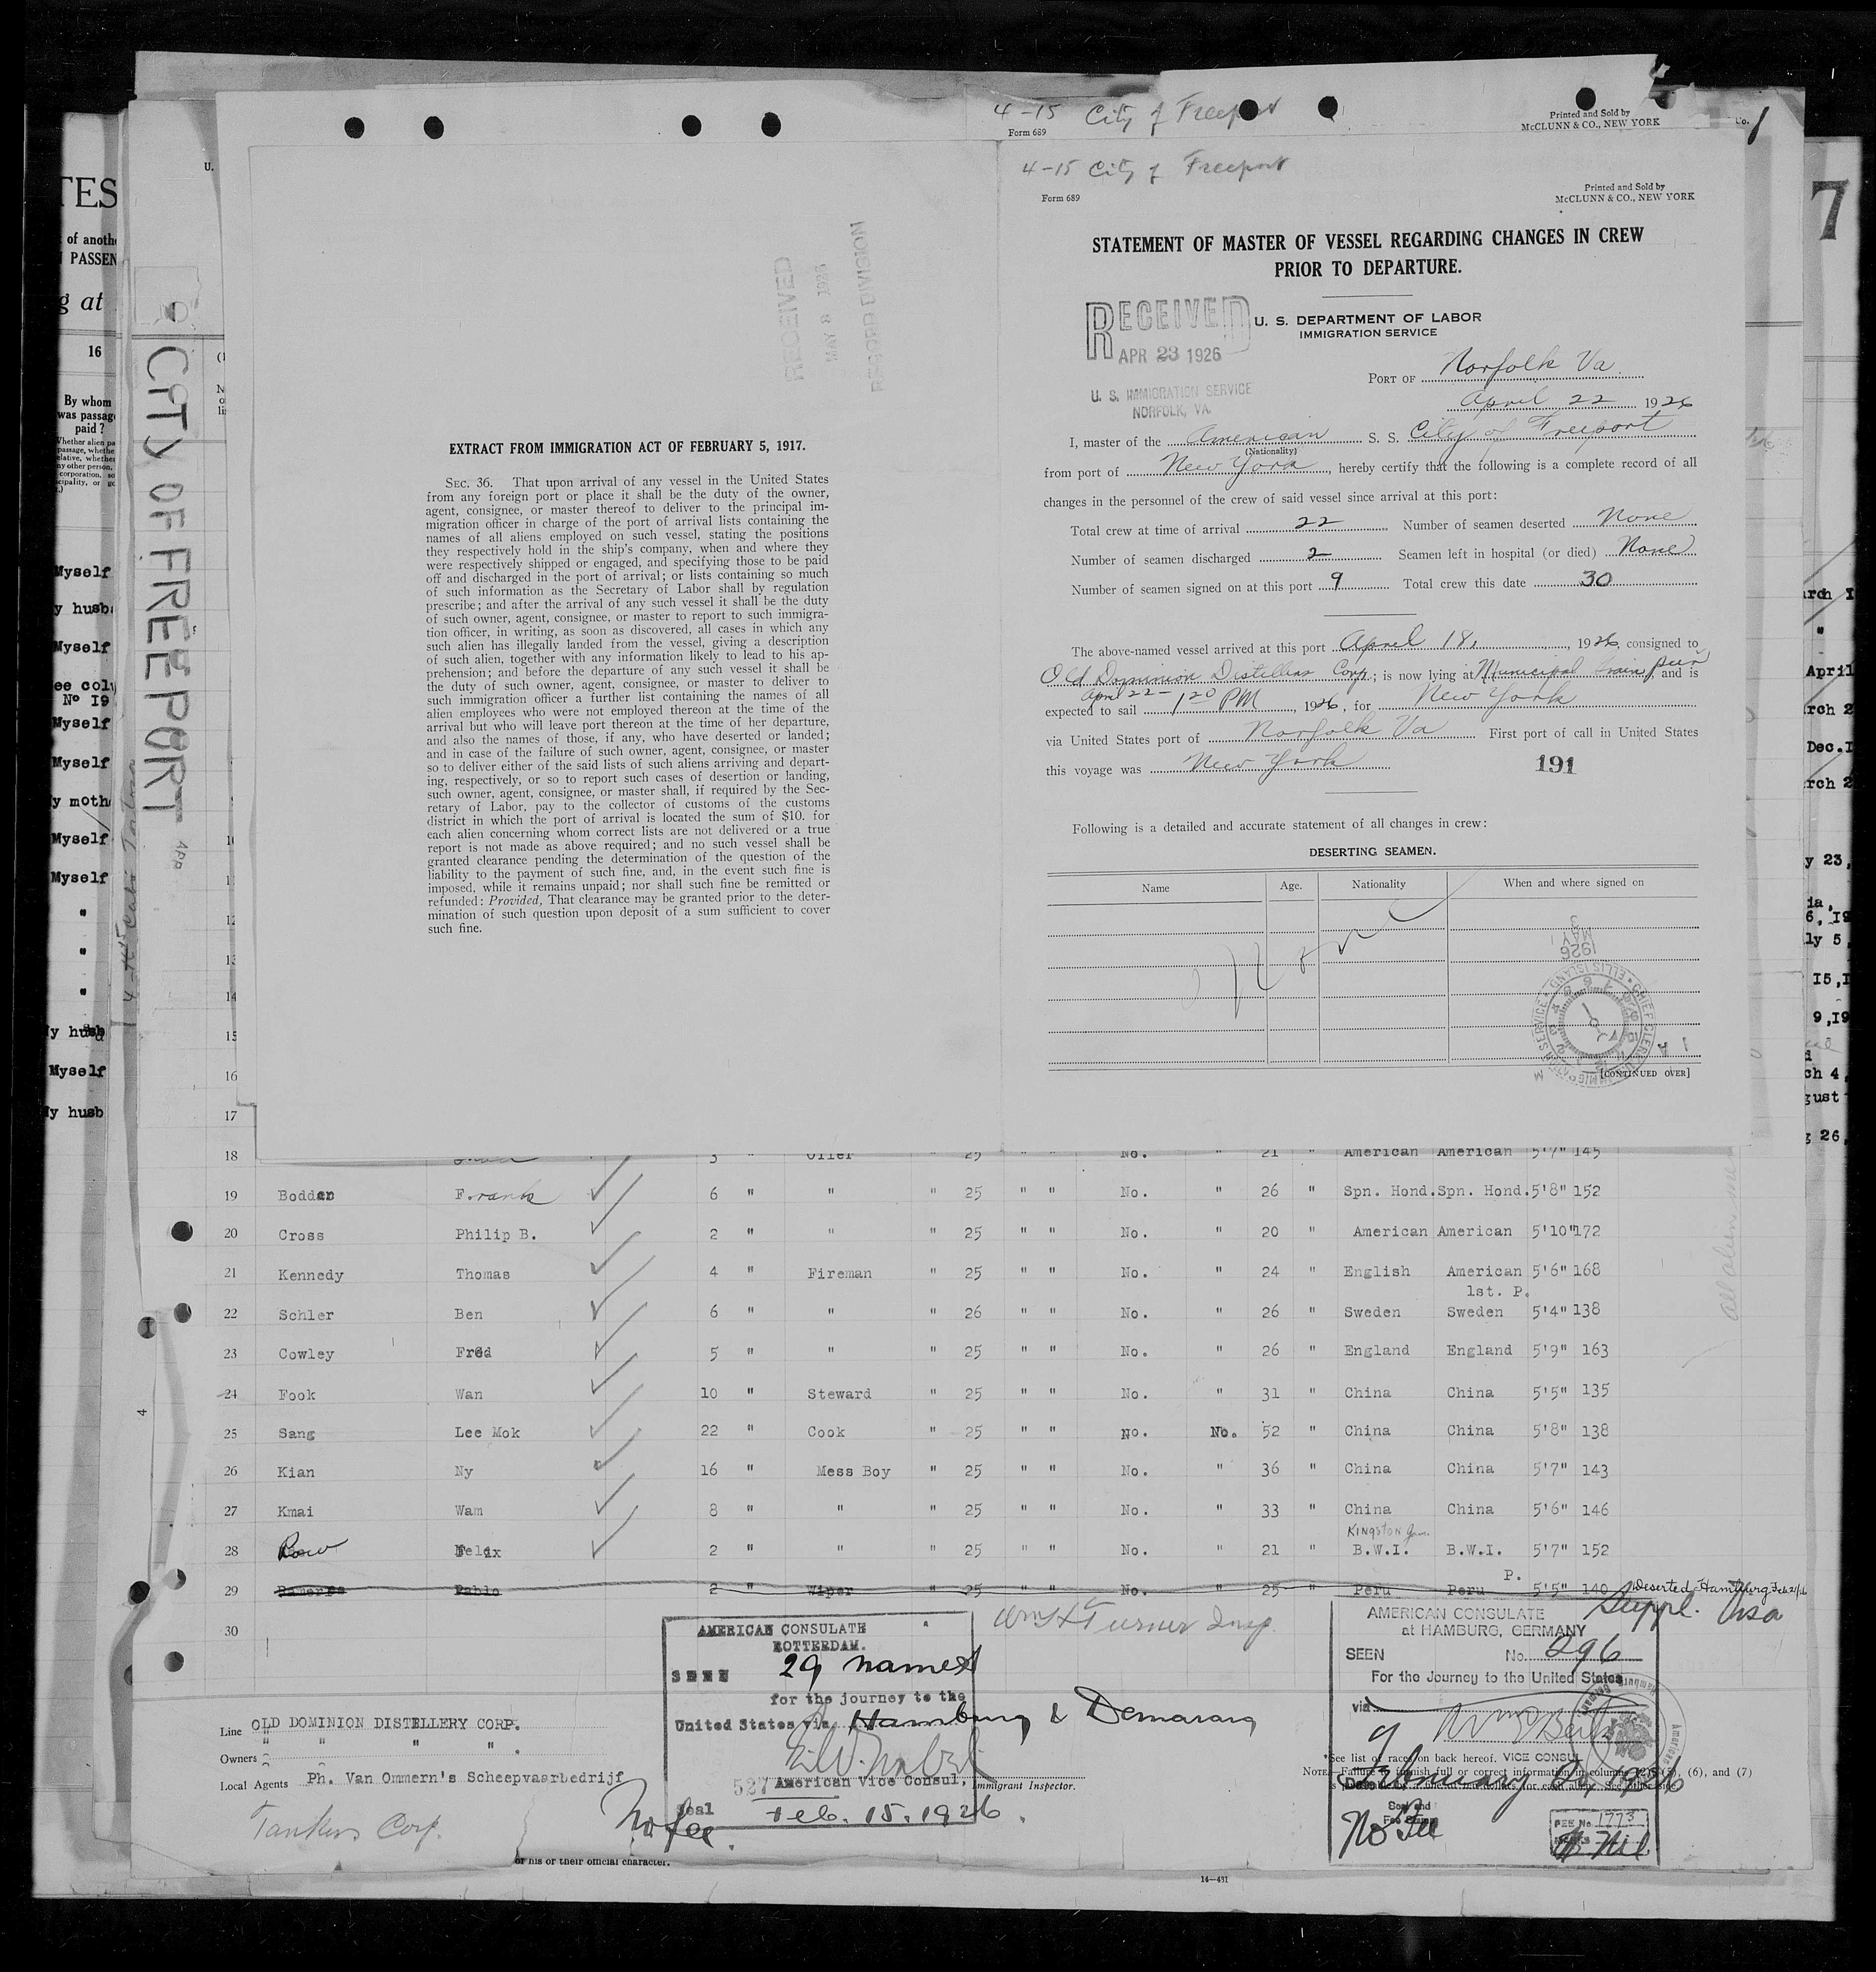 4-15 City of Freeport
Form 689
Printed and Sold by
McCLUNN & CO., NEW YORK
Co.
1
U.
4-15 City of Freeport
Form 689
Printed and Sold by
McCLUNN & CO., NEW YORK
7
TES
of anoth
PASSEN
g at
16
By whom
was passag
paid ?
CITY OF FREEPORT
APR
RECEIVED
MAY 8 1926
RECORD DIVISION
EXTRACT FROM IMMIGRATION ACT OF FEBRUARY 5, 1917.
SEC. 36. That upon arrival of any vessel in the United States
from any foreign port or place it shall be the duty of the owner,
agent, consignee, or master thereof to deliver to the principal im-
migration officer in charge of the port of arrival lists containing the
names of all aliens employed on such vessel, stating the positions
they respectively hold in the ship's company, when and where they
were respectively shipped or engaged, and specifying those to be paid
off and discharged in the port of arrival; or lists containing so much
of such information as the Secretary of Labor shall by regulation
prescribe; and after the arrival of any such vessel it shall be the duty
of such owner, agent, consignee, or master to report to such immigra-
tion officer, in writing, as soon as discovered, all cases in which any
such alien has illegally landed from the vessel, giving a description
of such alien, together with any information likely to lead to his ap-
prehension; and before the departure of any such vessel it shall be
the duty of such owner, agent, consignee, or master to deliver to
such immigration officer a further list containing the names of all
alien employees who were not employed thereon at the time of the
arrival but who will leave port thereon at the time of her departure,
and also the names of those, if any, who have deserted or landed;
and in case of the failure of such owner, agent, consignee, or master
so to deliver either of the said lists of such aliens arriving and depart-
ing, respectively, or so to report such cases of desertion or landing,
such owner, agent, consignee, or master shall, if required by the Sec-
retary of Labor, pay to the collector of customs of the customs
district in which the port of arrival is located the sum of $10. for
each alien concerning whom correct lists are not delivered or a true
report is not made as above required; and no such vessel shall be
granted clearance pending the determination of the question of the
liability to the payment of such fine, and, in the event such fine is
imposed, while it remains unpaid; nor shall such fine be remitted or
refunded: Provided, That clearance may be granted prior to the deter-
mination of such question upon deposit of a sum sufficient to cover
such fine.
STATEMENT OF MASTER OF VESSEL REGARDING CHANGES IN CREW
PRIOR TO DEPARTURE.
RECEIVED
APR 23 1926
U. S. IMMIGRATION SERVICE
NORFOLK, VA.
U. S. DEPARTMENT OF LABOR
IMMIGRATION SERVICE
PORT OF Norfolk Va.
April 22 1926
I, master of the American S. S. City of Freeport
(Nationality)
from port of New York, hereby certify that the following is a complete record of all
changes in the personnel of the crew of said vessel since arrival at this port:
Total crew at time of arrival 22 Number of seamen deserted None
Number of seamen discharged 2 Seamen left in hospital (or died) None
Number of seamen signed on at this port 9 Total crew this date 30
The above-named vessel arrived at this port April 18, 1926, consigned to
Old Dominion Distillers Corp.; is now lying at Municipal Grain pier and is
expected to sail April 22 - 1 20 PM, 1926, for New York
via United States port of Norfolk Va First port of call in United States
this voyage was New York
191
Following is a detailed and accurate statement of all changes in crew:
DESERTING SEAMEN.
Name Age. Nationality When and where signed on
None
MAY 3
1926
[CONTINUED OVER]
Myself
y husb
Myself
ee colu
No 19
Myself
Myself
y moth
Myself
Myself
"
"
"
y husb
Myself
y husb
10
11
12
13
14
15
16
17
18 3 " Oiler " 25 " " No. " 21 " American American 5'7" 145
19 Bodden Frank 6 " " " 25 " " No. " 26 " Spn. Hond. Spn. Hond. 5'8" 152
20 Cross Philip B. 2 " " " 25 " " No. " 20 " American American 5'10" 172
21 Kennedy Thomas 4 " Fireman " 25 " " No. " 24 " English American 5'6" 168
1st. P.
22 Schler Ben 6 " " " 26 " " No. " 26 " Sweden Sweden 5'4" 138
23 Cowley Fred 5 " " " 25 " " No. " 26 " England England 5'9" 163
24 Fook Wan 10 " Steward " 25 " " No. " 31 " China China 5'5" 135
25 Sang Lee Mok 22 " Cook " 25 " " No. No. 52 " China China 5'8" 138
26 Kian Ny 16 " Mess Boy " 25 " " No. " 36 " China China 5'7" 143
27 Kmai Wam 8 " " " 25 " " No. " 33 " China China 5'6" 146
Kingston Jam.
28 Row Felix 2 " " " 25 " " No. " 21 " B.W.I. B.W.I. 5'7" 152
P.
29 Pablo 2 " Wiper " 25 " " No. " 25 " Peru Peru 5'5" 140 Deserted Hamburg Feb 21/26
30
Wm H Turner Insp.
AMERICAN CONSULATE
ROTTERDAM.
SEEN 29 names
for the journey to the
United States via Hamburg & Demarara
527 American Vice Consul,
Seal Feb. 15. 1926.
No fee.
Immigrant Inspector.
Suppl. Visa
AMERICAN CONSULATE
at HAMBURG, GERMANY
SEEN No. 296
For the Journey to the United States
via
VICE CONSUL
February 1926
No Fee
FEE No. 1773
Line OLD DOMINION DISTILLERY CORP.
Owners " " " " .
Local Agents Ph. Van Ommern's Scheepvaarbedrijf
Tankers Corp.
*See list of races on back hereof.
NOTE.—Failure to furnish full or correct information in columns (6), and (7)
of his or their official character.
14—431